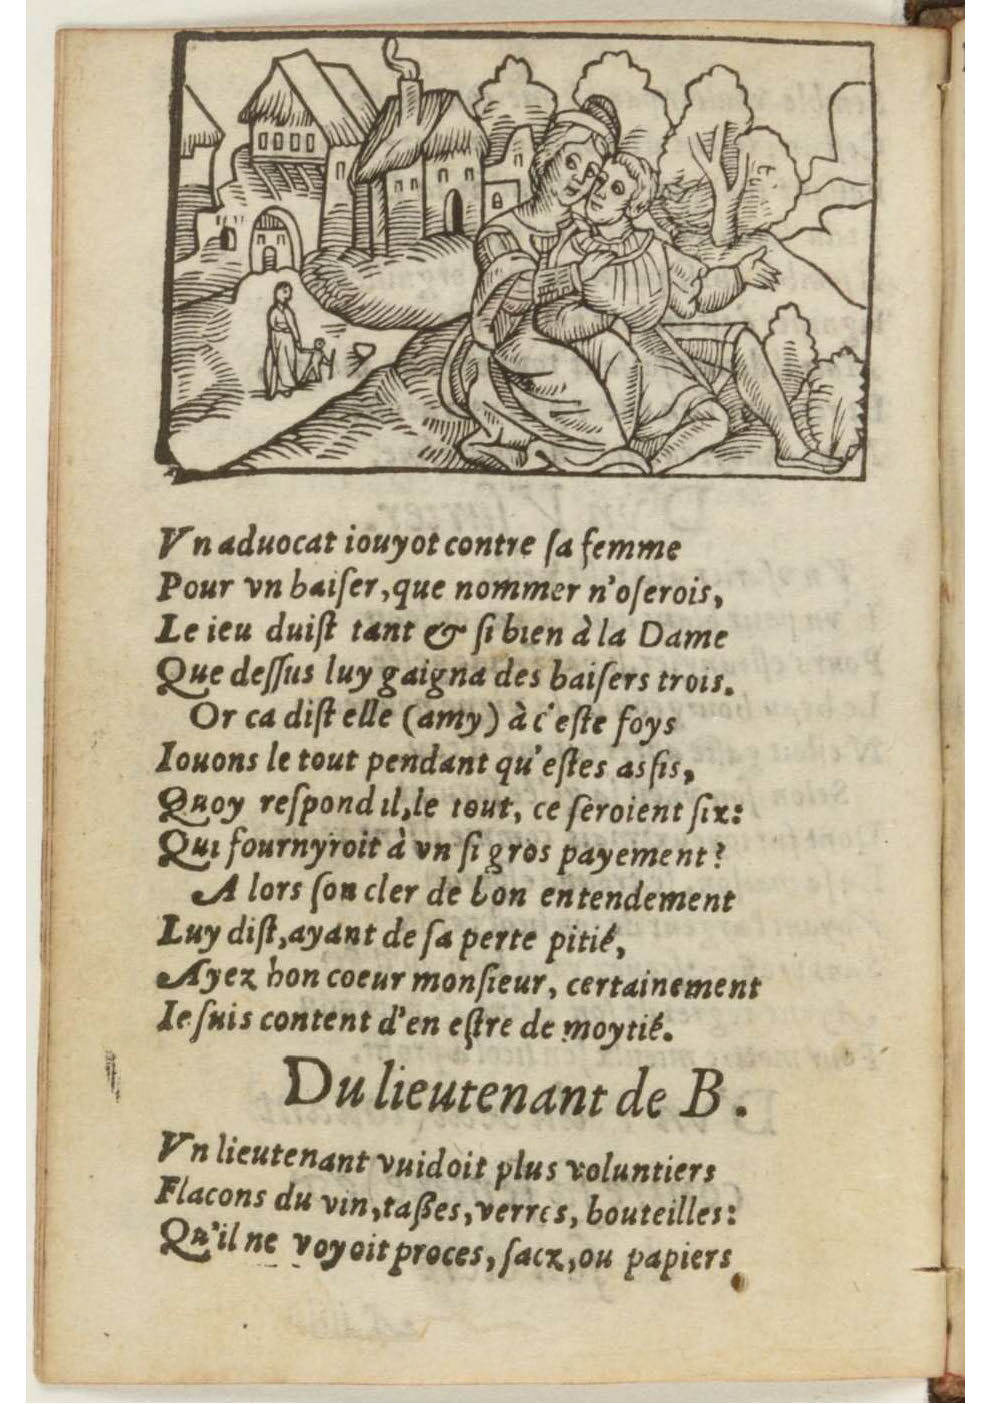 Vn aduocat iouyot contre ſa femme
Pour vn baiſer, que nommer n'oſerois,
Le ieu duiſt tant & ſi bien à la Dame
Que deſſus luy gaigna des baiſers trois.
Or ca diſt elle (amy) à c'eſte foys
Iouons le tout pendant qu'eſtes aſsis,
Quoy reſpond il, le tout, ce ſeroient ſix:
Qui fournyroit à vn ſi gros payement?
Alors ſon cler de bon entendement
Luy diſt, ayant de ſa perte pitié,
Ayez bon coeur monſieur, certainement
Ie ſuis content d'en eſtre de moytié.
Du lieutenant de B.
Vn lieutenant vuidoit plus voluntiers
Flacons du vin, taßes, verres, bouteilles:
Qu'il ne voyoit proces, ſacz, ou papiers